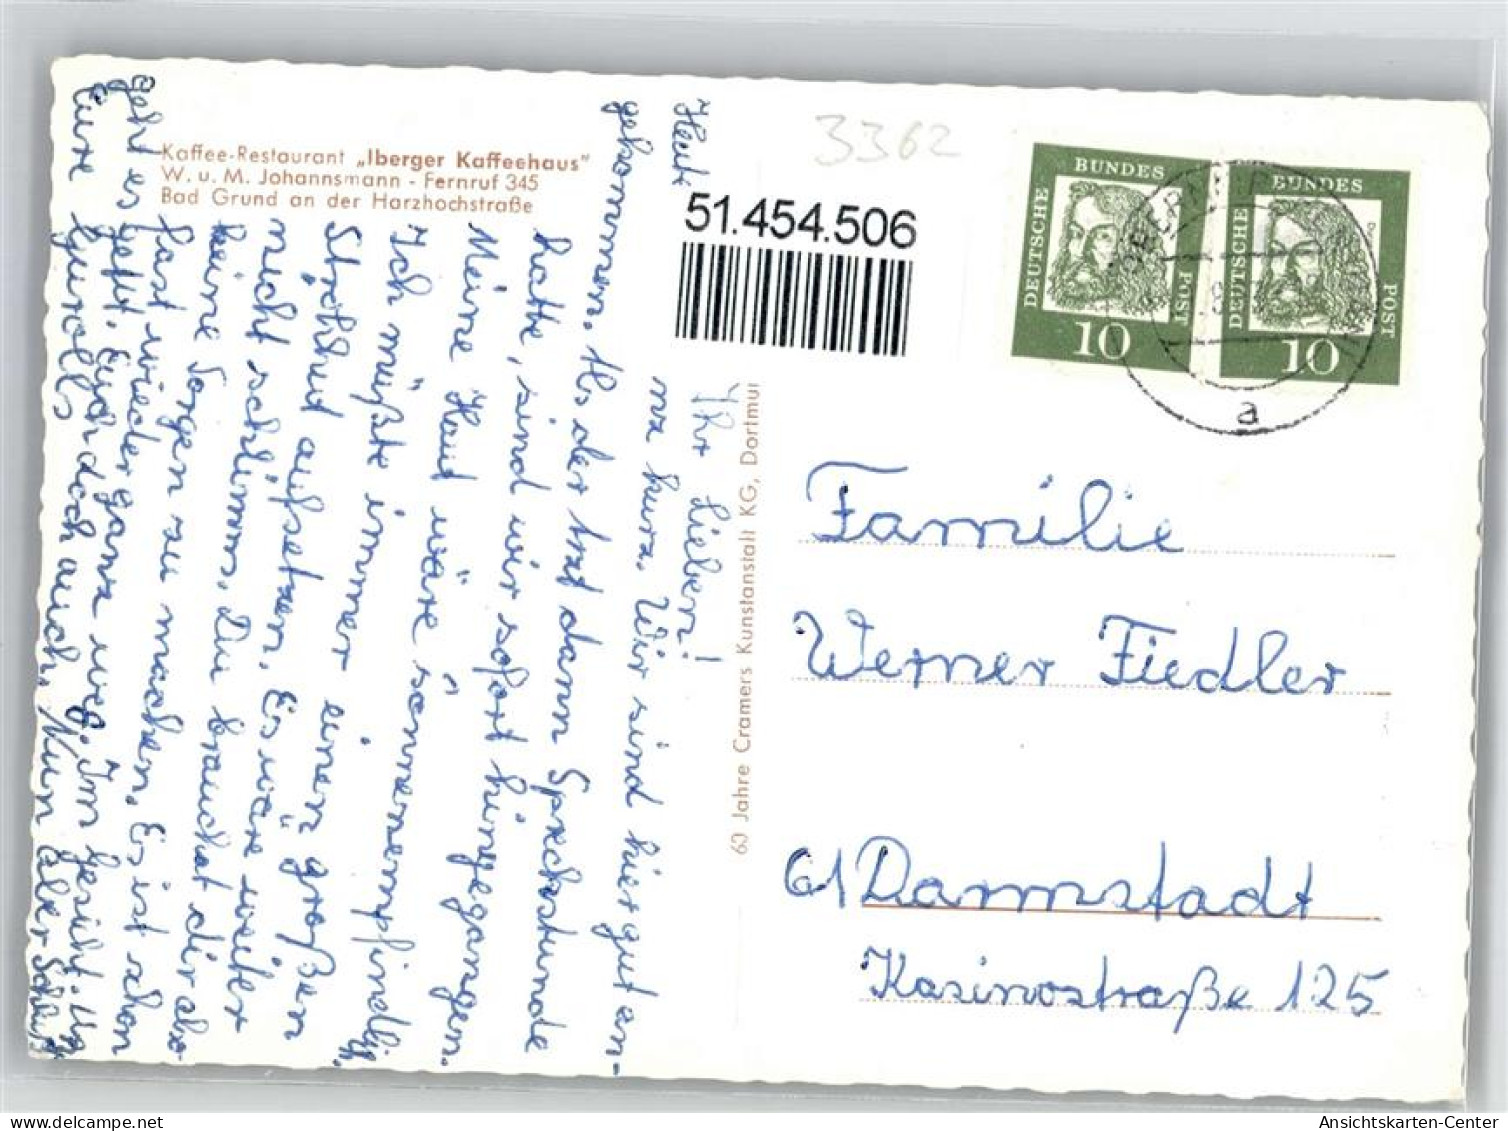 3362
Kaffee-Restaurant „Iberger Kaffeehaus"
W. u. M. Johannsmann - Fernruf 345
Bad Grund an der Harzhochstraße
51.454.506
DEUTSCHE BUNDES POST
10
DEUTSCHE BUNDES POST
10
a
60 Jahre Cramers Kunstanstalt KG, Dortmu
Ihr Lieben!
Heute
na kurz. Wir sind hier gut an-
gekommen. Als der Arzt dann Sprechstunde
hatte, sind wir sofort hingegangen.
Meine Haut wäre sonnenempfindlich.
Ich müßte immer einen großen
Strohhut aufsetzen. Es wäre weiter
nicht schlimm. Du brauchst dir also
keine Sorgen zu machen. Es ist schon
fast wieder ganz weg. Im Gesicht.
geht es jetzt. Euch doch auch. Nun aber Schluß
Eure
Familie
Werner Fiedler
61 Darmstadt
Kasinostraße 125
Ansichtskarten-Center